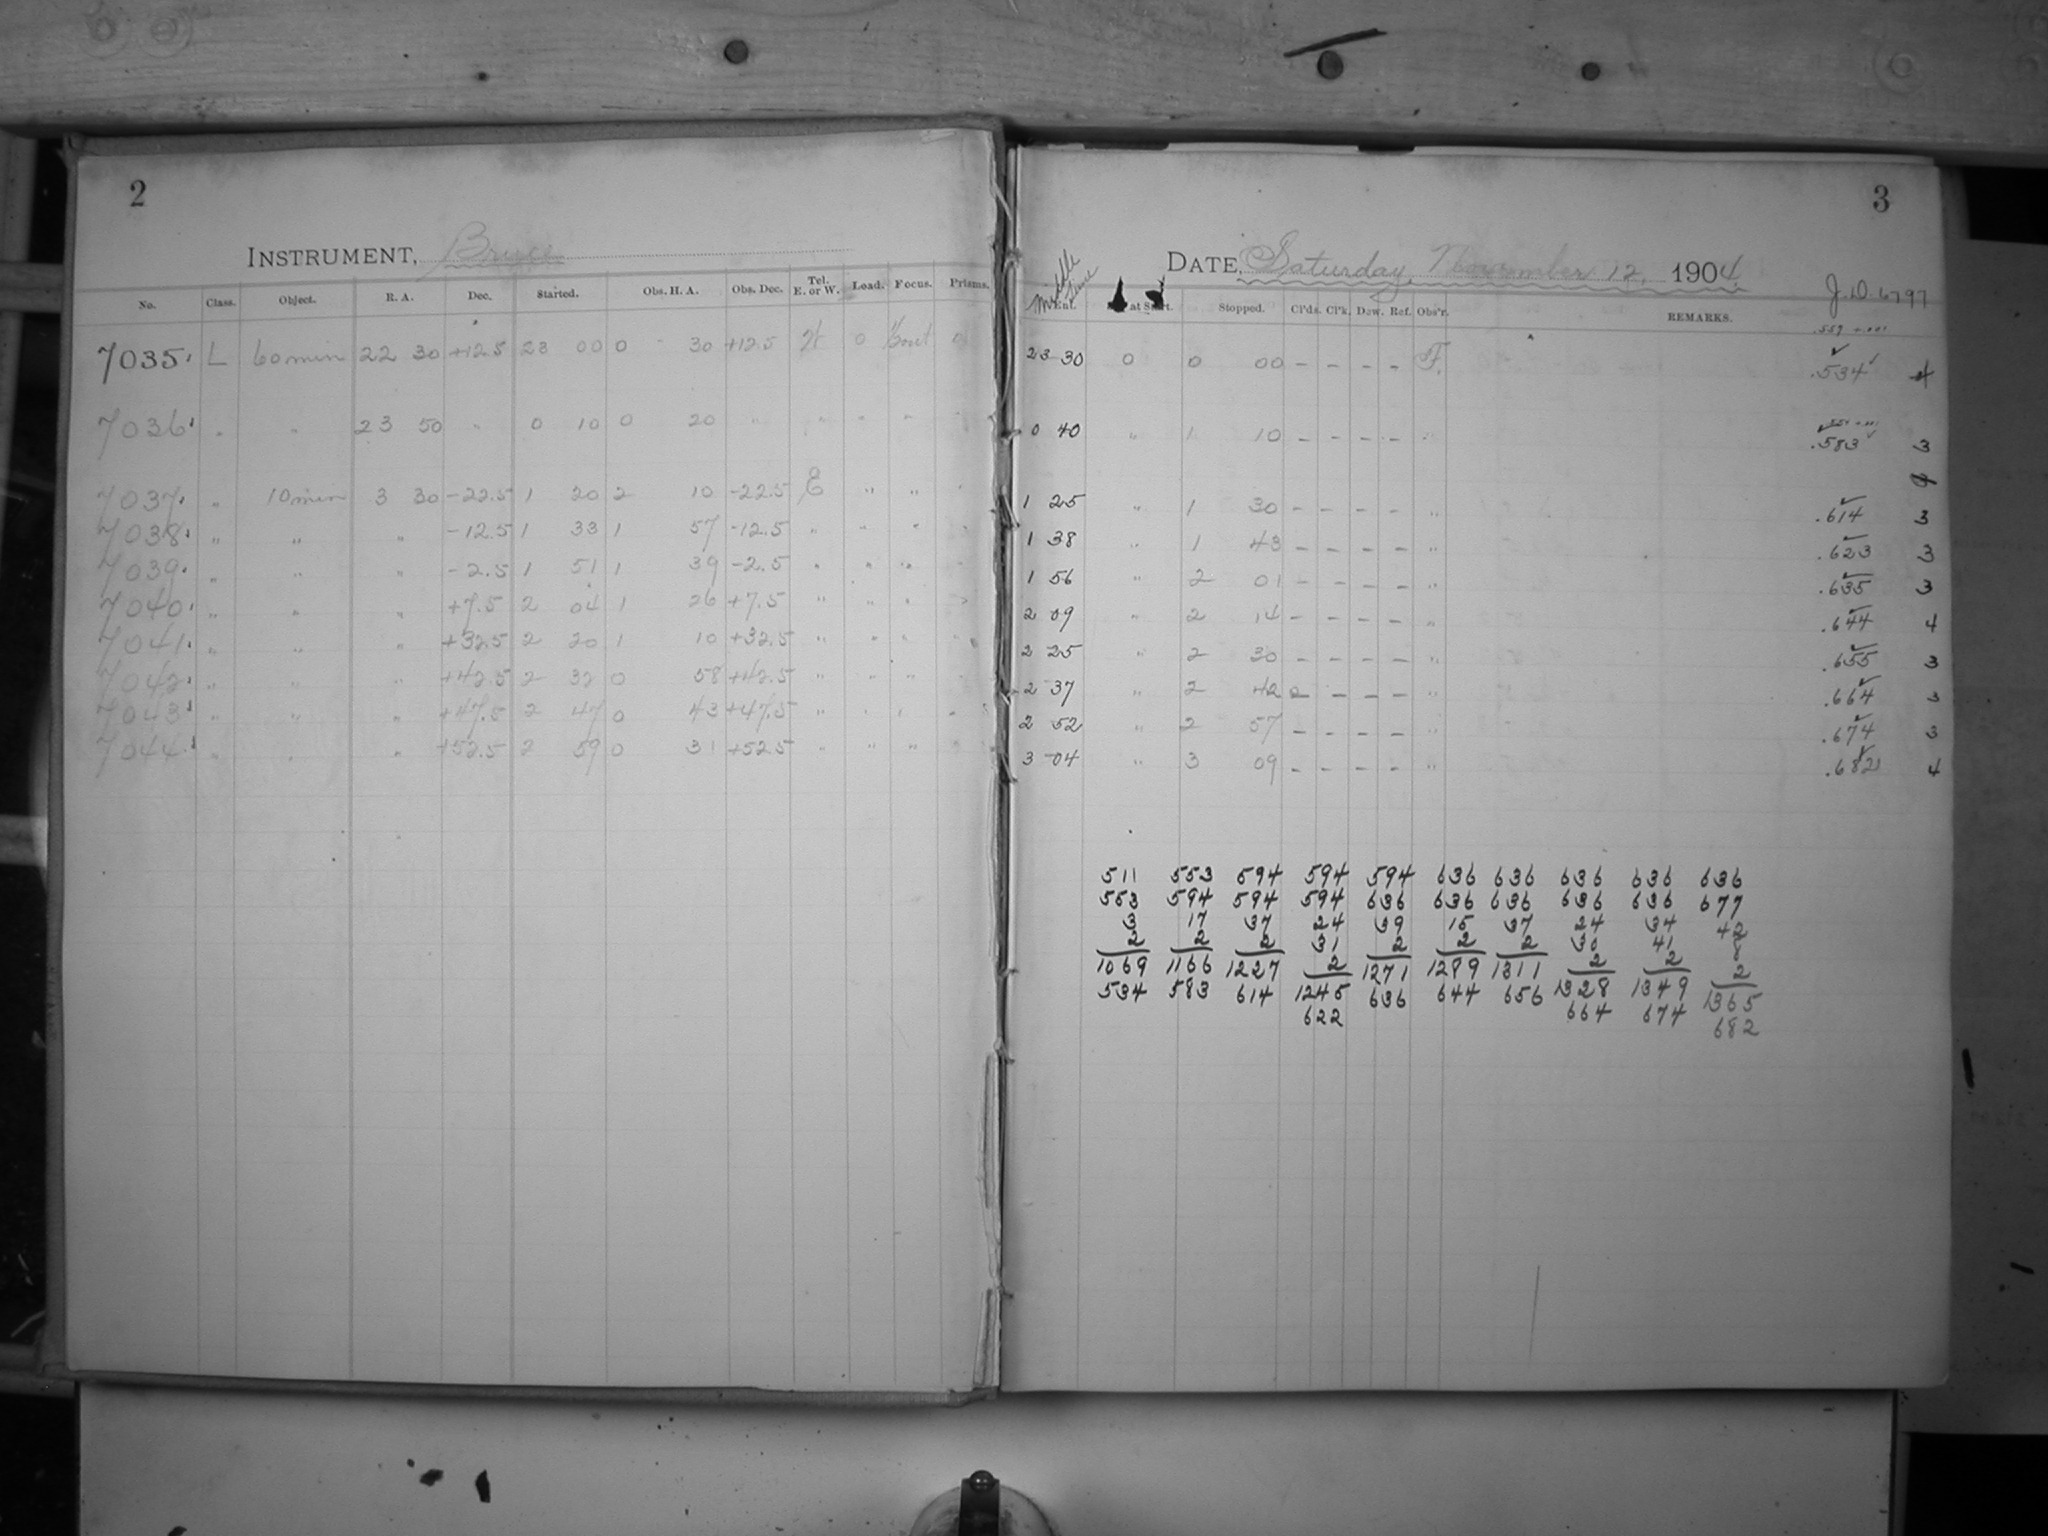 2
INSTRUMENT, Bruce
No. Class. Object. R. A. Dec. Started. Obs. H. A. Obs. Dec. Tel. E. or W. Load. Focus. Prisms.
7035 L 60 min 22 30 +12.5 23 00 0 30 +12.5 W 0 0
7036 " " 23 50 " 0 10 0 20 " " " "
7037 " 10 min 3 30 -22.5 1 20 2 10 -22.5 E " "
7038 " " " -12.5 1 33 1 57 -12.5 " " "
7039 " " " -2.5 1 51 1 39 -2.5 " " "
7040 " " " +7.5 2 04 1 26 +7.5 " " "
7041 " " " +32.5 2 20 1 10 +32.5 " " "
7042 " " " +42.5 2 32 0 58 +42.5 " " "
7043 " " " +47.5 2 47 0 43 +47.5 " " "
7044 " " " +52.5 2 59 0 31 +52.5 " " "
3
DATE, Saturday, November 12, 1904
J.D. 6797
Middle Time
Ent. at Start. Stopped. Cl'ds. Cl'k. Dew. Ref. Obs'r. REMARKS.
.559 +.001
23 30 0 0 00 - - - - F. .534 4
0 40 " 1 10 - - - - " .583 3
1 25 " 1 30 - - - - " .614 3
1 38 " 1 43 - - - - " .623 3
1 56 " 2 01 - - - - " .635 3
2 09 " 2 14 - - - - " .644 4
2 25 " 2 30 - - - - " .655 3
2 37 " 2 42 2 - - - " .664 3
2 52 " 2 57 - - - - " .674 3
3 04 " 3 09 - - - - " .682 4
511 553 594 594 594 636 636 636 636 636
553 594 594 594 636 636 636 636 636 677
3 17 37 24 39 15 37 24 34 42
2 2 2 31 2 2 2 30 41 8
1069 1166 1227 2 1271 1289 1311 2 2 2
534 583 614 1245 636 644 656 1328 1349 1365
622 664 674 682